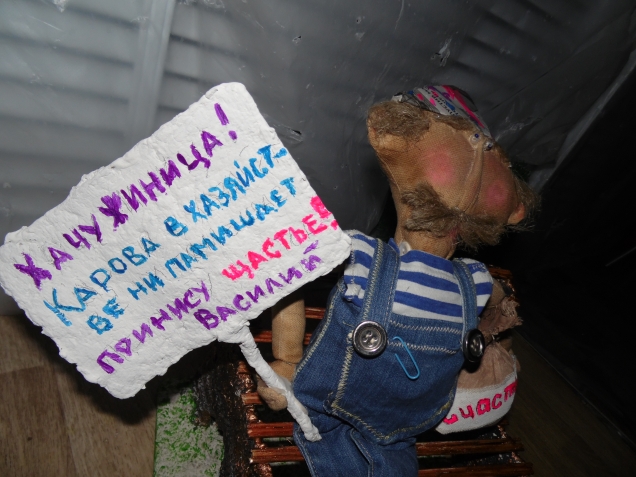 ХАЧУ ЖИНИЦА!
КАРОВА В ХАЗЯЙСТ-
ВЕ НИ ПАМИШАЕТ
ПРИНИСУ ЩАСТЬЕ!
ВАСИЛИЙ
счасть